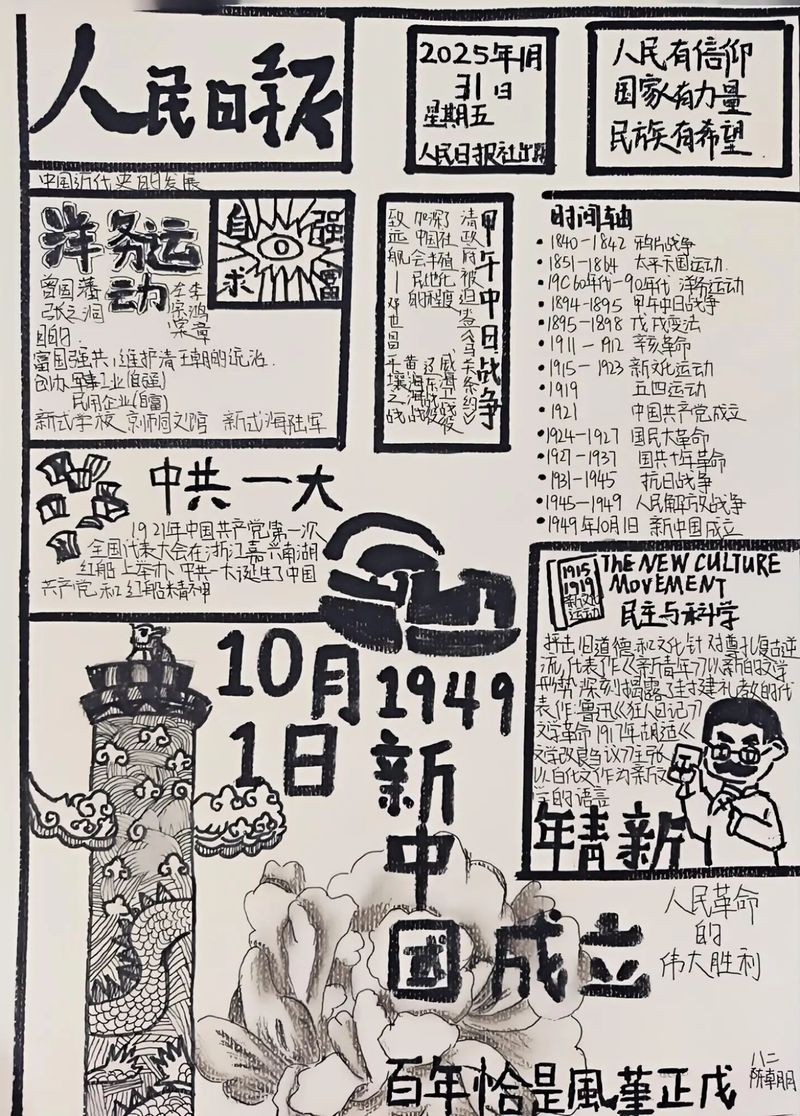 人民日报
2025年1月
31日
星期五
人民日报社出版
人民有信仰
国家有力量
民族有希望
中国近代史的发展
洋务运动
自强
求富
曾国藩 李鸿章
张之洞 左宗棠
目的:
富国强兵,维护清王朝的统治.
创办军事工业(自强)
民用企业(自富)
新式学校 京师同文馆 新式海陆军
甲午中日战争
清政府被迫签《马关条约》
加深了中国社会半殖民地化的程度
致远舰—邓世昌
威海卫战役
辽东战役
黄海海战
平壤之战
时间轴
•1840-1842 鸦片战争
•1851-1864 太平天国运动.
•19C60年代-90年代 洋务运动
•1894-1895 甲午中日战争
•1895-1898 戊戌变法
•1911-1912 辛亥革命
•1915-1923 新文化运动
•1919 五四运动
•1921 中国共产党成立
•1924-1927 国民大革命
•1927-1937 国共十年革命
•1931-1945 抗日战争
•1945-1949 人民解放战争
•1949年10月1日 新中国成立
中共一大
1921年中国共产党第一次
全国代表大会在浙江嘉兴南湖
红船上举办,中共一大诞生了中国
共产党和红船精神
1915
1919
新文化
运动
THE NEW CULTURE
MOVEMENT
民主与科学
抨击旧道德和文化针对尊孔复古逆
流,代表作《新青年》以新的文学
形势,深刻揭露了封建礼教的代
表作:鲁迅《狂人日记》
文学革命 1917年胡适《
文学改良刍议》主张
以白话文作为新文
学的语言
年青新
10月
1日
1949
新中国成立
人民革命
的
伟大胜利
百年恰是風華正茂
八二
陈朝朋